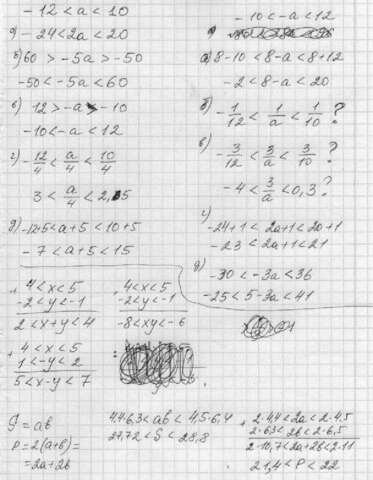 -12 < a < 10
а) -24 < 2a < 20
б) 60 > -5a > -50
-50 < -5a < 60
в) 12 > -a > -10
-10 < -a < 12
г) -12/4 < a/4 < 10/4
3 < a/4 < 2,5
д) -12+5 < a+5 < 10+5
-7 < a+5 < 15
-10 < -a < 12
а) 8-10 < 8-a < 8+12
-2 < 8-a < 20
б) -1/12 < 1/a < 1/10 ?
в) -3/12 < 3/a < 3/10 ?
-4 < 3/a < 0,3 ?
г)
-24+1 < 2a+1 < 20+1
-23 < 2a+1 < 21
д) -30 < -3a < 36
-25 < 5-3a < 41
+ 4 < x < 5
-2 < y < -1
2 < x+y < 4
4 < x < 5
-2 < y < -1
-8 < xy < -6
+ 4 < x < 5
1 < -y < 2
5 < x-y < 7
S = ab
P = 2(a+b) =
= 2a+2b
4,4·6,3 < ab < 4,5·6,4
27,72 < S < 28,8
+ 2·4,4 < 2a < 2·4,5
2·6,3 < 2b < 2·6,5
2·10,7 < 2a+2b < 2·11
21,4 < P < 22